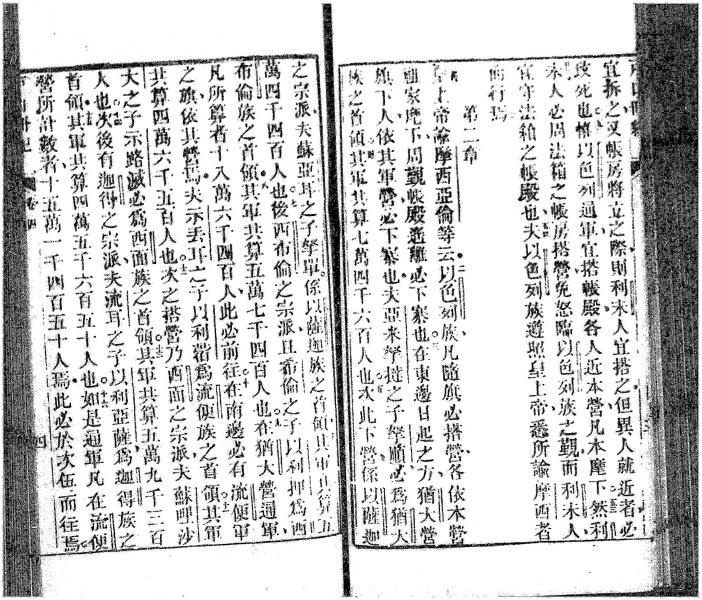 宜拆之又帳房將立之際則利未人宜搭之但異人就近者必
致死也惟以色列通軍宜搭帳殿各人近本營凡本麾下然利
未人必周法箱之帳房搭營免怒臨以色列族之覲而利未人
宜守法箱之帳殿也夫以色列族遵照皇上帝悉所諭摩西者
而行焉
第二章
皇上帝諭摩西亞倫等云以色列族凡隨旗必搭營各依本營
祖家麾下周覲帳殿遙離必下寨也在東邊日起之方猶大營
旗下人依其軍營必下寨也夫亞米拏撻之子拏順必爲猶大
族之首領其軍共算七萬四千六百人也次此下營係以薩迦
之宗派夫蘇亞耳之子拏軍係以薩迦族之首領其軍共算五
萬四千四百人也後西布倫之宗派且希倫之子以利押爲西
布倫族之首領其軍共算五萬七千四百人也在猶大營通軍
凡所算者十八萬六千四百人此必前往在南邊必有流便軍
之旗依其營焉夫示丟耳之子以利蓿爲流便族之首領其軍
共算四萬六千五百人也次之搭營乃西面之宗派夫蘇哩沙
大之子示路滅必爲西面族之首領其軍共算五萬九千三百
人也次後有迦得之宗派夫流耳之子以利亞薩爲迦得族之
首領其軍共算四萬五千六百五十人也如是通軍凡在流便
營所計數者十五萬一千四百五十人焉此必於次伍而往焉
四